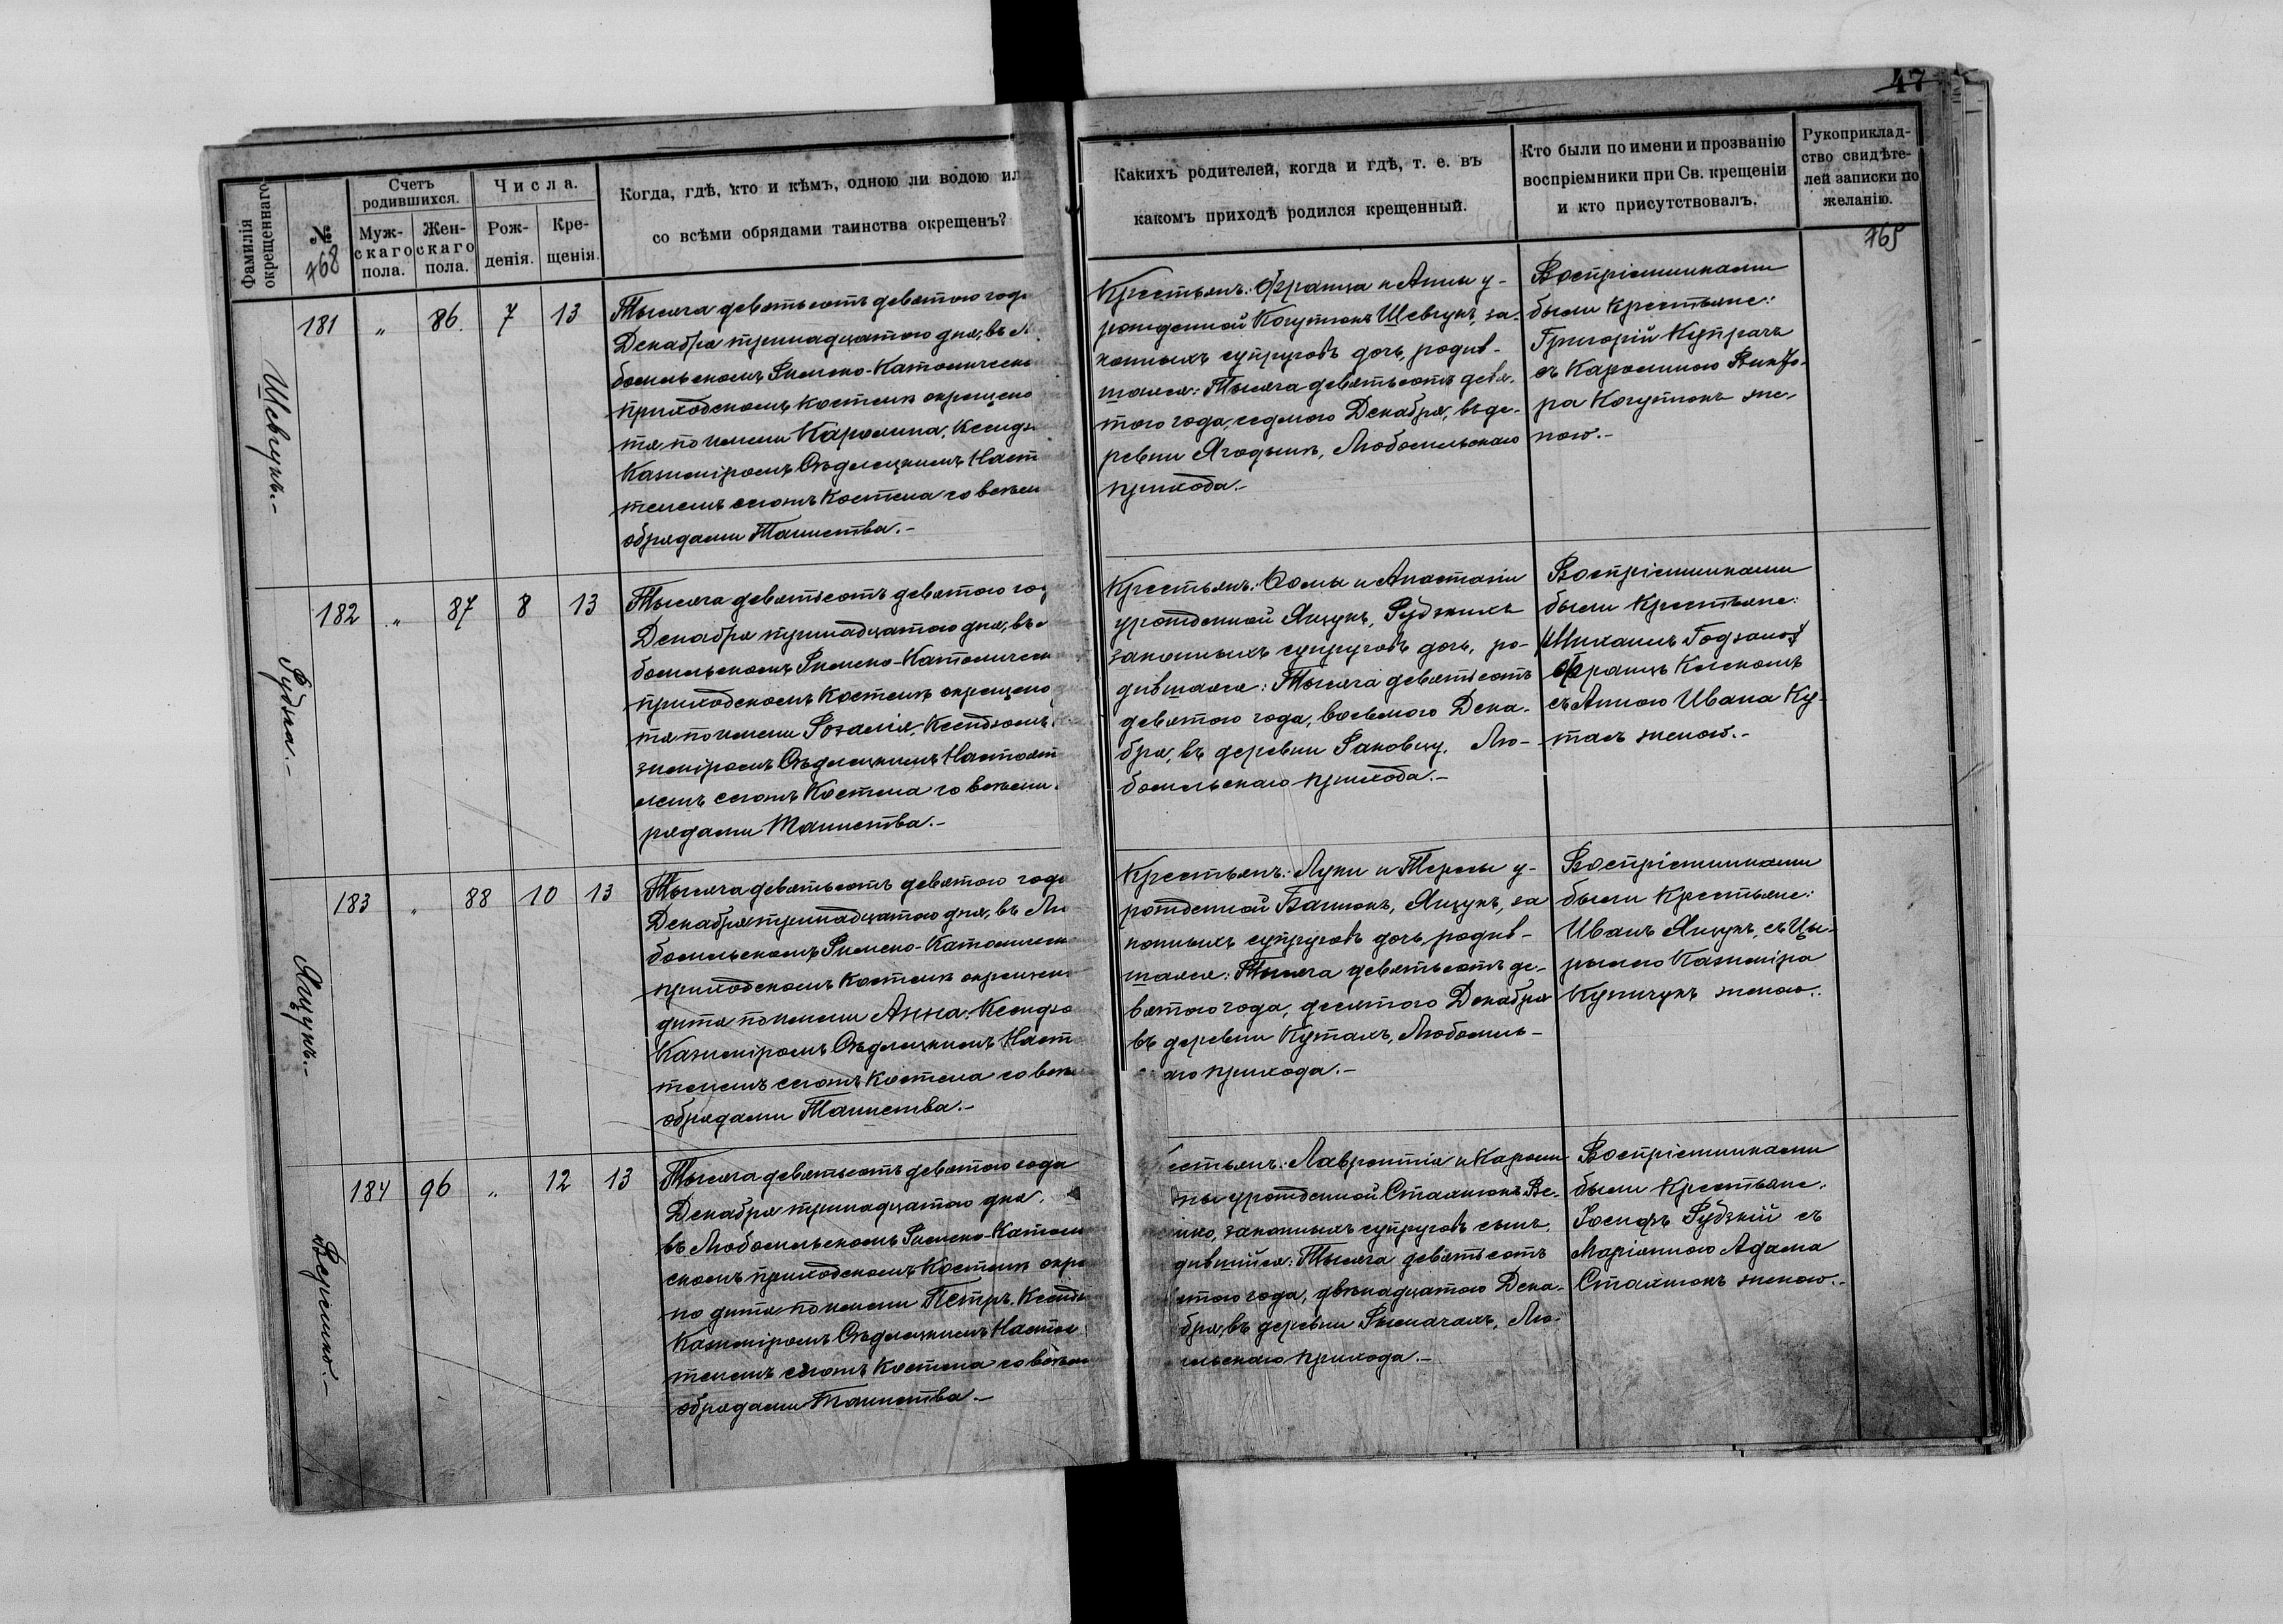 47
Фамилія окрещеннаго.
№
768
Счетъ родившихся.
Муж-
скаго
пола.
Жен-
скаго
пола.
Числа.
Рож-
денія.
Кре-
щенія.
Когда, гдѣ, кто и кѣмъ, одною ли водою или
со всѣми обрядами таинства окрещенъ?
Какихъ родителей, когда и гдѣ, т. е. въ
какомъ приходѣ родился крещенный.
Кто были по имени и прозванію
воспріемники при Св. крещеніи
и кто присутствовалъ.
Рукоприклад-
ство свидѣте-
лей записки по
желанію.
769
Шевчукъ.-
181 " 86. 7 13
Тысяча девятьсотъ девятого года
Декабря тринадцатого дня, въ Л
бомльскомъ Римско-Католическо
приходскомъ Костелѣ окрещено
тя по имени Каролина, Ксендз
Казиміромъ Сѣдлецкимъ Наст
телемъ сегожъ Костела со всѣми
обрядами Таинства.-
Крестьянъ: Франца и Анны у-
рожденной Когутюкъ Шевчукъ, за-
конныхъ супруговъ дочь, родив-
шаяся: Тысяча девятьсотъ девя-
того года, седмого Декабря, въ де-
ревни Ягодынѣ, Любомльскаго
прихода.-
Воспріемниками
были Крестьяне:
Григорій Купрачъ
съ Каролиною Викто-
ра Когутюкъ же-
ною.-
Рудзка.-
182 " 87 8 13
Тысяча девятьсотъ девятого го
Декабря тринадцатого дня, въ
бомльскомъ Римско-Католическ
приходскомъ Костелѣ окрещено
тя по имени Розалія, Ксендзомъ
зиміромъ Сѣдлецкимъ Настоят
лемъ сегожъ Костела со всѣми
рядами Таинства.-
Крестьянъ: Ѳомы и Анастасіи
урожденной Ящукъ, Рудзкихъ
законныхъ супруговъ дочь, ро-
дившаяся: Тысяча девятьсотъ
девятого года, восьмого Дека-
бря, въ деревни Раковцу, Лю-
бомльскаго прихода.-
Воспріемниками
были Крестьяне:
Францъ
съ Анною Ивана Ку-
женою.-
Ящукъ.-
183 " 88 10 13
Тысяча девятьсотъ девятого года
Декабря тринадцатого дня, въ Лю
бомльскомъ Римско-Католическ
приходскомъ Костелѣ окрещено
дитя по имени Анна, Ксендзо
Казиміромъ Сѣдлецкимъ Наст
телемъ сегожъ Костела со всѣ
обрядами Таинства.-
Крестьянъ: Луки и Терезы у-
рожденной Ящукъ, за
конныхъ супруговъ дочь, родив-
шаяся: Тысяча девятьсотъ де-
вятого года, десятого Декабря
въ деревни Кутахъ, Любомль-
аго прихода.-
Воспріемниками
были Крестьяне:
Иванъ Ящукъ, съ
Казиміра
женою.-
Веремко.-
184 96 " 12 13
Тысяча девятьсотъ девятого года
Декабря тринадцатого дня,
въ Любомльскомъ Римско-Католи
скомъ приходскомъ Костелѣ окре
но дитя по имени Петръ, Ксендз
Казиміромъ Сѣдлецкимъ Настоя
телемъ сегожъ Костела со всѣми
обрядами Таинства.-
естьянъ: Лаврентія и Кароли
ны урожденной Сталюкъ Ве-
мко, законныхъ супруговъ сынъ,
дившійся: Тысяча девятьсотъ
ятого года, двѣнадцатого Дека-
бря, въ деревни Рымачахъ, Лю-
мльскаго прихода.-
Воспріемниками
были Крестьяне:
Іосифъ Рудзкій съ
Маріанною Адама
Сталюкъ женою.-